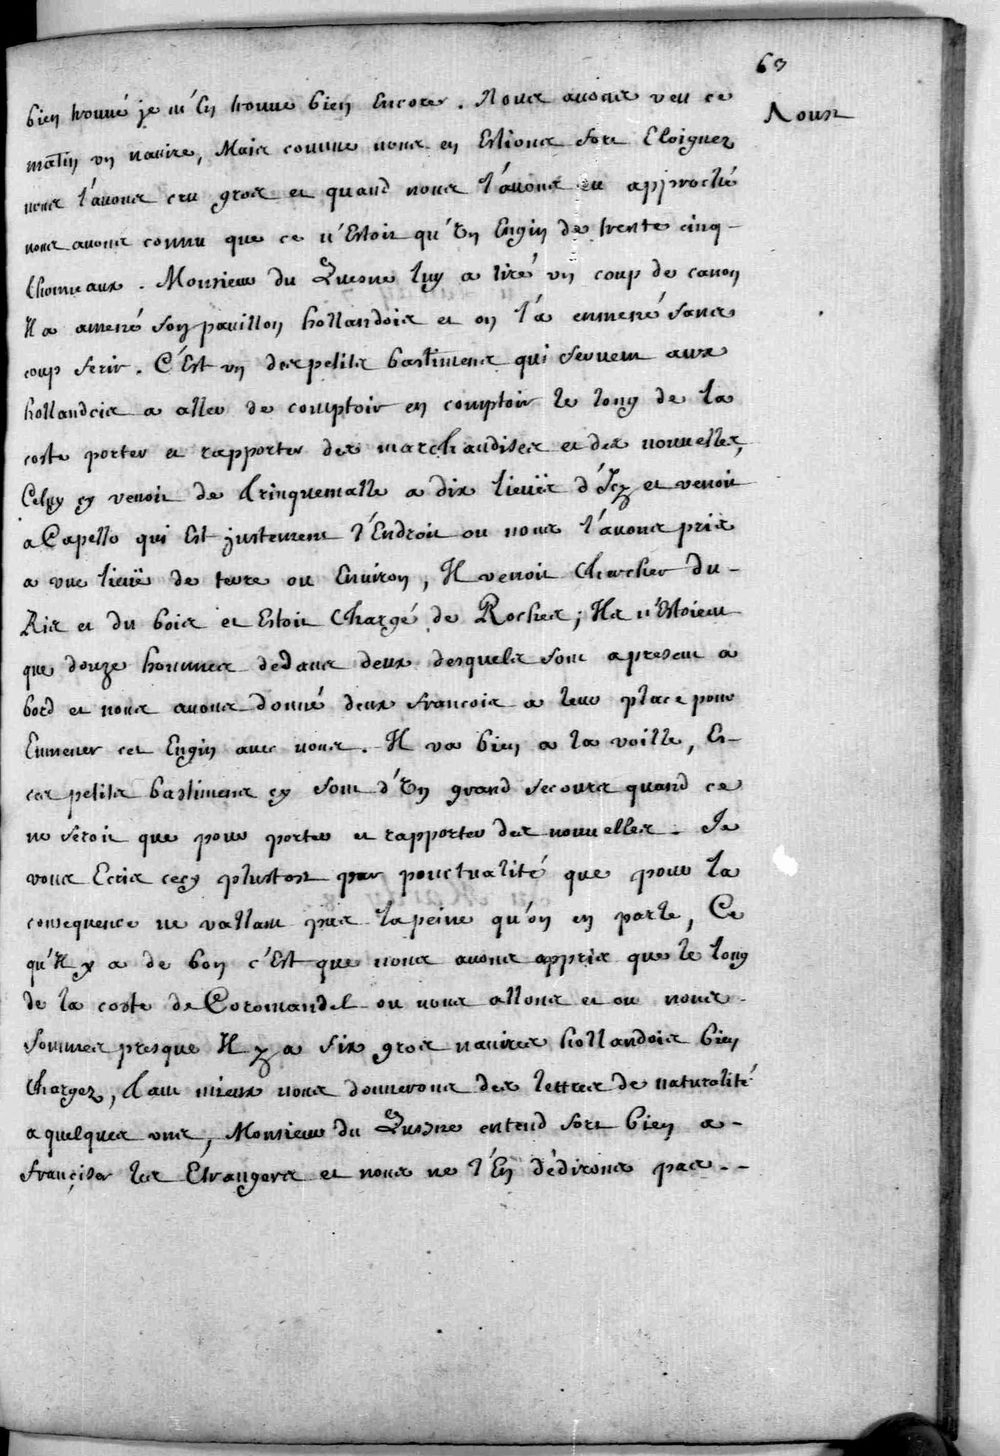 63
Nous
bien trouvé je m'En trouue bien Encore. Nous auons veu ce
matin vn nauire, Mais comme nous en Estions fort Eloignez
nous l'auons cru gros et quand nous l'auons eu approché
nous auons connu que ce n'Estoit qu'Vn Engin de trente cinq-
thonneaux. Monsieur du Quesne luy a tiré vn coup de canon
Il a amené son pauillon hollandois et on l'a emmené sans
coup ferir. C'Est vn des petits bastimens qui seruent aux
hollandois a aller de comptoir en comptoir le long de la
coste porter et rapporter des marchandises et des nouuelles,
Celuy cy venoit de Trinquemalle a dix lieuës d'Icy et venoit
a Capello qui Est justement l'Endroit ou nous l'auons pris
a vne lieuë de terre ou Enuiron, Il venoit Chercher du-
Ris et du bois et Estoit Chargé de Roches; Ils n'Estoient
que douze hommes dedans deux desquels sont apresent a
bord et nous auons donné deux francois a leur place pour
Emmener cet Engin auec nous. Il va bien a la voille, Et-
ces petits bastimens cy sont d'Vn grand secours quand ce
ne seroit que pour porter et rapporter des nouuelles. Je
vous Ecris cecy plustost par ponctualité que pour la
consequence ne vallant pas la peine qu'on en parle, Ce
qu'Il y a de bon c'Est que nous auons appris que le long
de la coste de Coromandel ou nous allons et ou nous-
sommes presque Il y a six gros nauires hollandois bien
Chargez, tant mieux nous donnerons des lettres de naturalité
a quelques vns, Monsieur du Quesne entend fort bien a-
françiser les Etrangers et nous ne l'En dédirons pas--